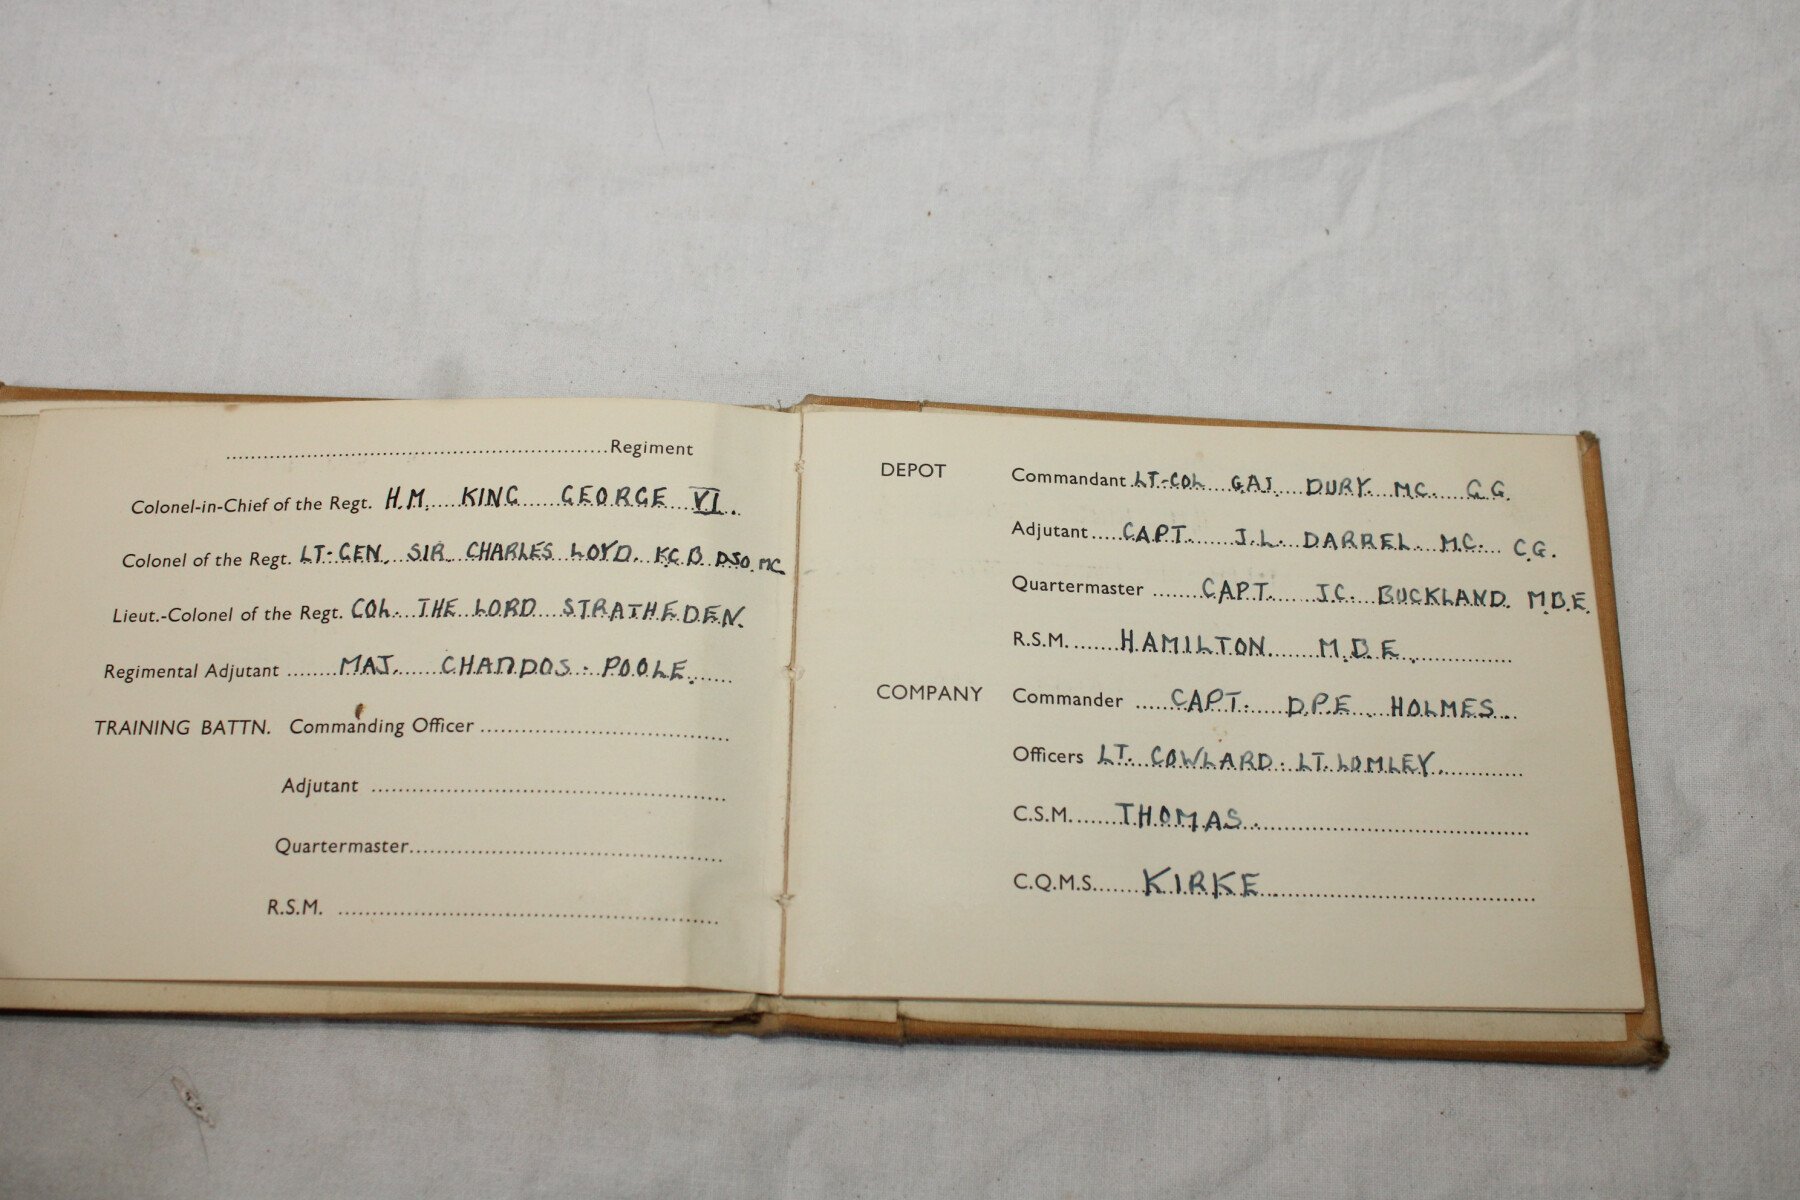 Regiment
Colonel-in-Chief of the Regt. H.M. KING GEORGE VI.
Colonel of the Regt. LT-GEN. SIR CHARLES LOYD. KCB DSO. MC.
Lieut.-Colonel of the Regt. COL. THE LORD STRATHEDEN.
Regimental Adjutant MAJ. CHANDOS-POOLE.
TRAINING BATTN. Commanding Officer
Adjutant
Quartermaster
R.S.M.
DEPOT Commandant LT-COL G.A.I. DURY. MC. G.G.
Adjutant CAPT. J.L. DARREL. M.C. C.G.
Quartermaster CAPT. J.C. BUCKLAND. M.B.E.
R.S.M. HAMILTON. M.B.E.
COMPANY Commander CAPT. D.P.E. HOLMES.
Officers LT. COWLARD. LT. LOMLEY.
C.S.M. THOMAS.
C.Q.M.S. KIRKE.